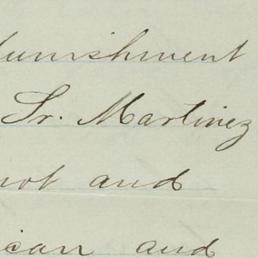 punishment
Sr. Martinez
not and
ican and